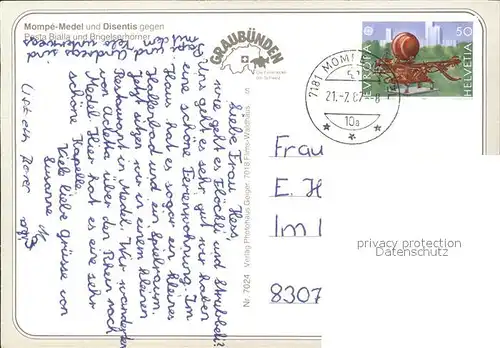 Mompé-Medel und Disentis gegen
Pasta Bialla und Brigelserhörner
GRAUBÜNDEN
Die Ferienecke
der Schweiz
Liebe Frau Hess,
wie geht es Flöckli und Strubbeli?
Uns geht es sehr gut, wir haben
eine schöne Ferienwohnung. Im
Haus hat es sogar ein kleines
Hallenbad und 1 Spielraum.
Jetzt sitzen wir in einem kleinen
Restaurant in Medel. Wir wanderten
von über den nach
Medel. Hier hat es eine sehr
schöne Kapelle.
Viele liebe Grüsse von
Susanne
sind
unterwegs
S
Nr. 7024 Verlag Photohaus Geiger, 7018 Flims-Waldhaus
7181 MOMP
21.-7.87-8
10a
EUROPA
50
HELVETIA
Frau
E. H
Im
8307
privacy protection
Datenschutz